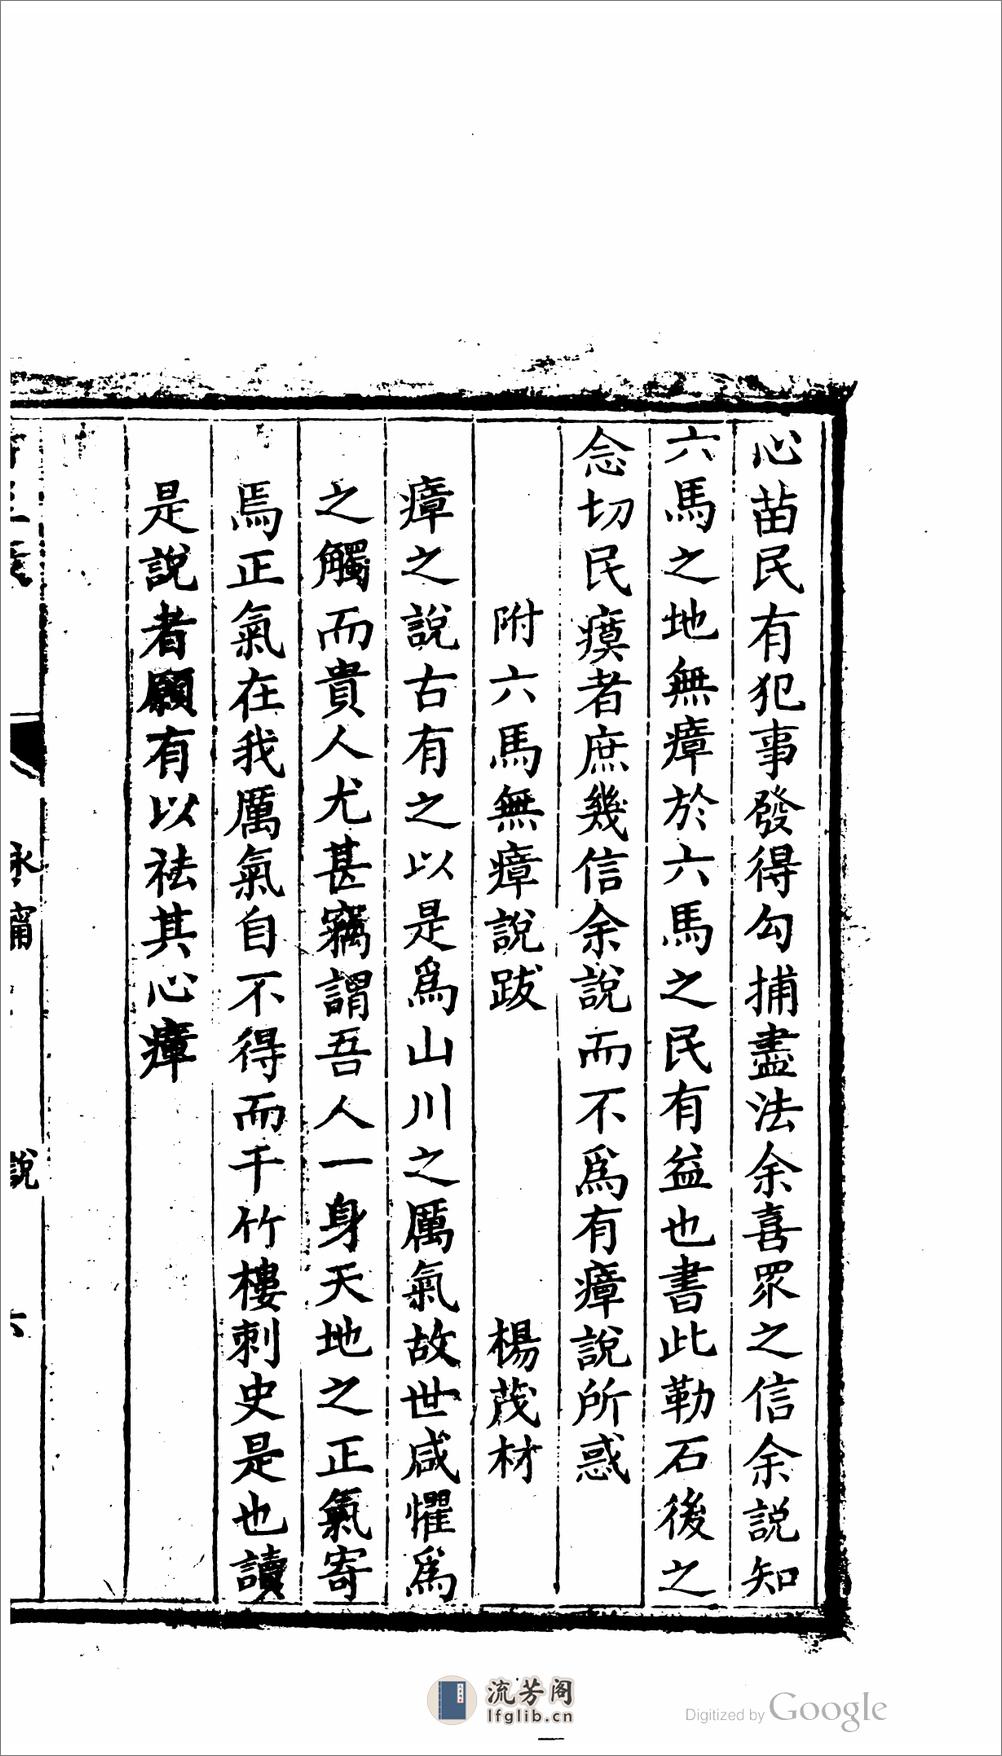 心苗民有犯事發得勾捕盡法余喜眾之信余說知
六馬之地無瘴於六馬之民有益也書此勒石後之
念切民瘼者庶幾信余說而不為有瘴說所惑
附六馬無瘴說跋 楊茂材
瘴之說古有之以是爲山川之厲氣故世咸懼爲
之觸而貴人尤甚竊謂吾人一身天地之正氣寄
焉正氣在我厲氣自不得而干竹樓刺史是也讀
是說者願有以祛其心瘴
永甯
說
六
流芳阁
lfglib.cn
Digitized by Google